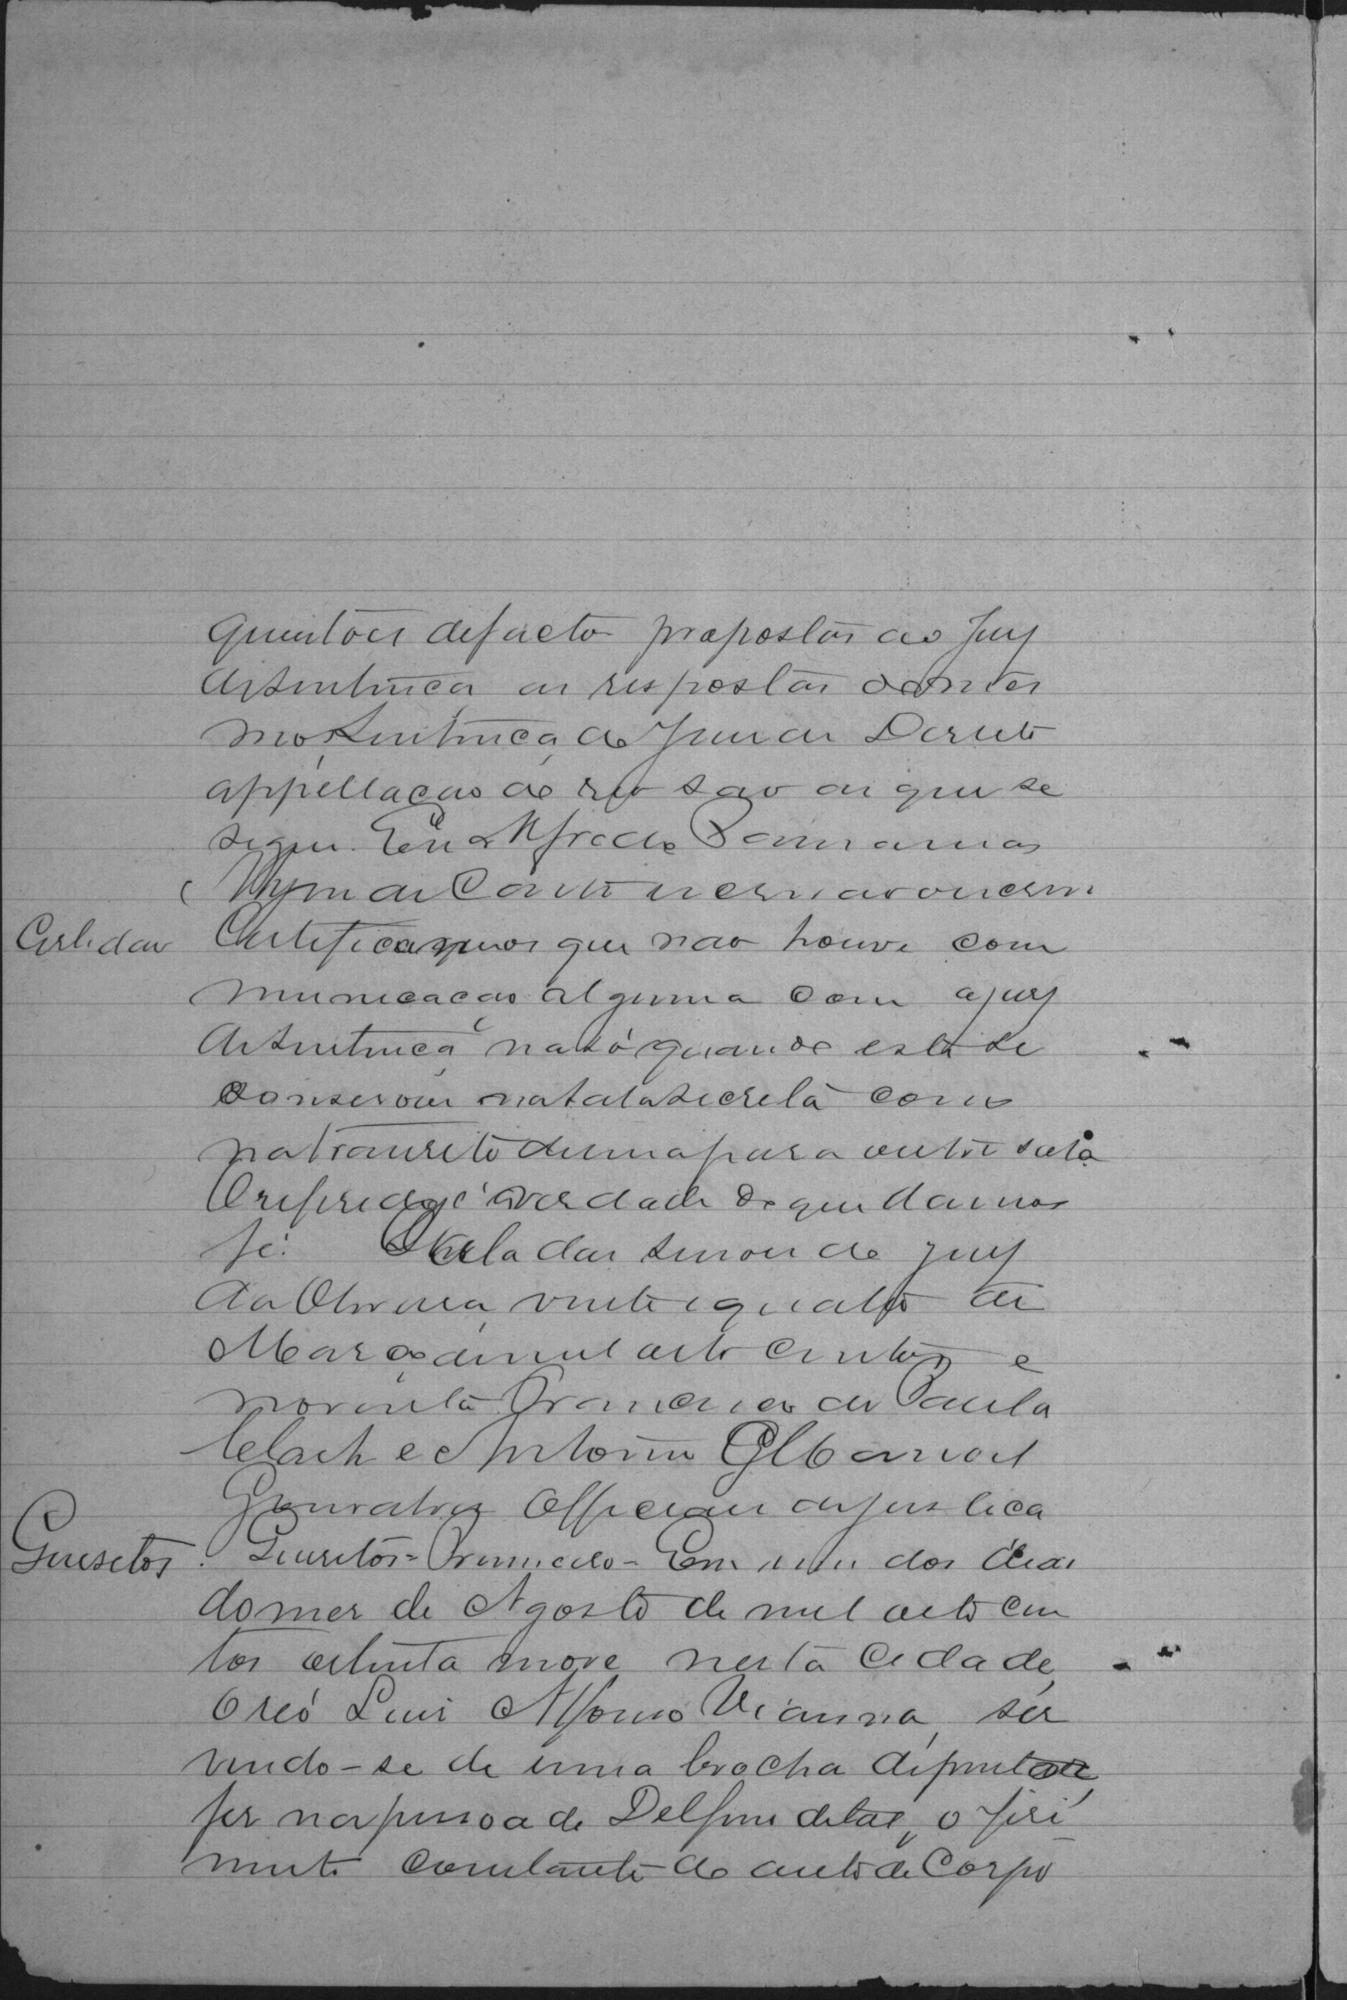 questões de facto propostas ao Jury
de sentença as respostas do mes
mo, sentença do Juiz de Direito
appellação do reo são as que se
segue. Eu Alfredo
Certidão Certificamos que não houve com
municação alguma com o jury
de sentença, não só quando esta se
conservou na sala secreta como
no transito de uma para outra sala
O referido é verdade do que damos
fé. Sala das sessões do jury
da Oliveira, vinte e quatro de
Março de mil oito centos e
noventa Francisco de Paula
e Antonio
Gonsalves Officiaes de justiça
Quesitos. Quesitos = Primeiro - Em um dos dias
do mez de Agosto de mil oito cen
tos oitenta nove nesta Cidade,
o reó Luis Affonso Vianna, ser
vindo-se de uma brocha de pintor
fez na pessoa de Delfino de tal, o feri
mento constante do auto de Corpo